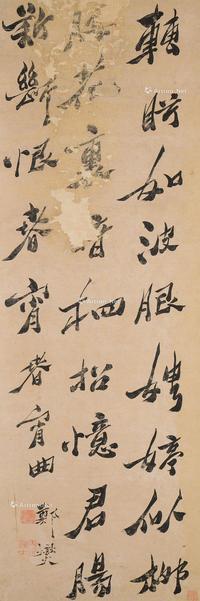 轉眄如波眼娉婷似柳
腰花裏暗相招憶君腸
欲斷恨春宵春宵曲
鄭燮